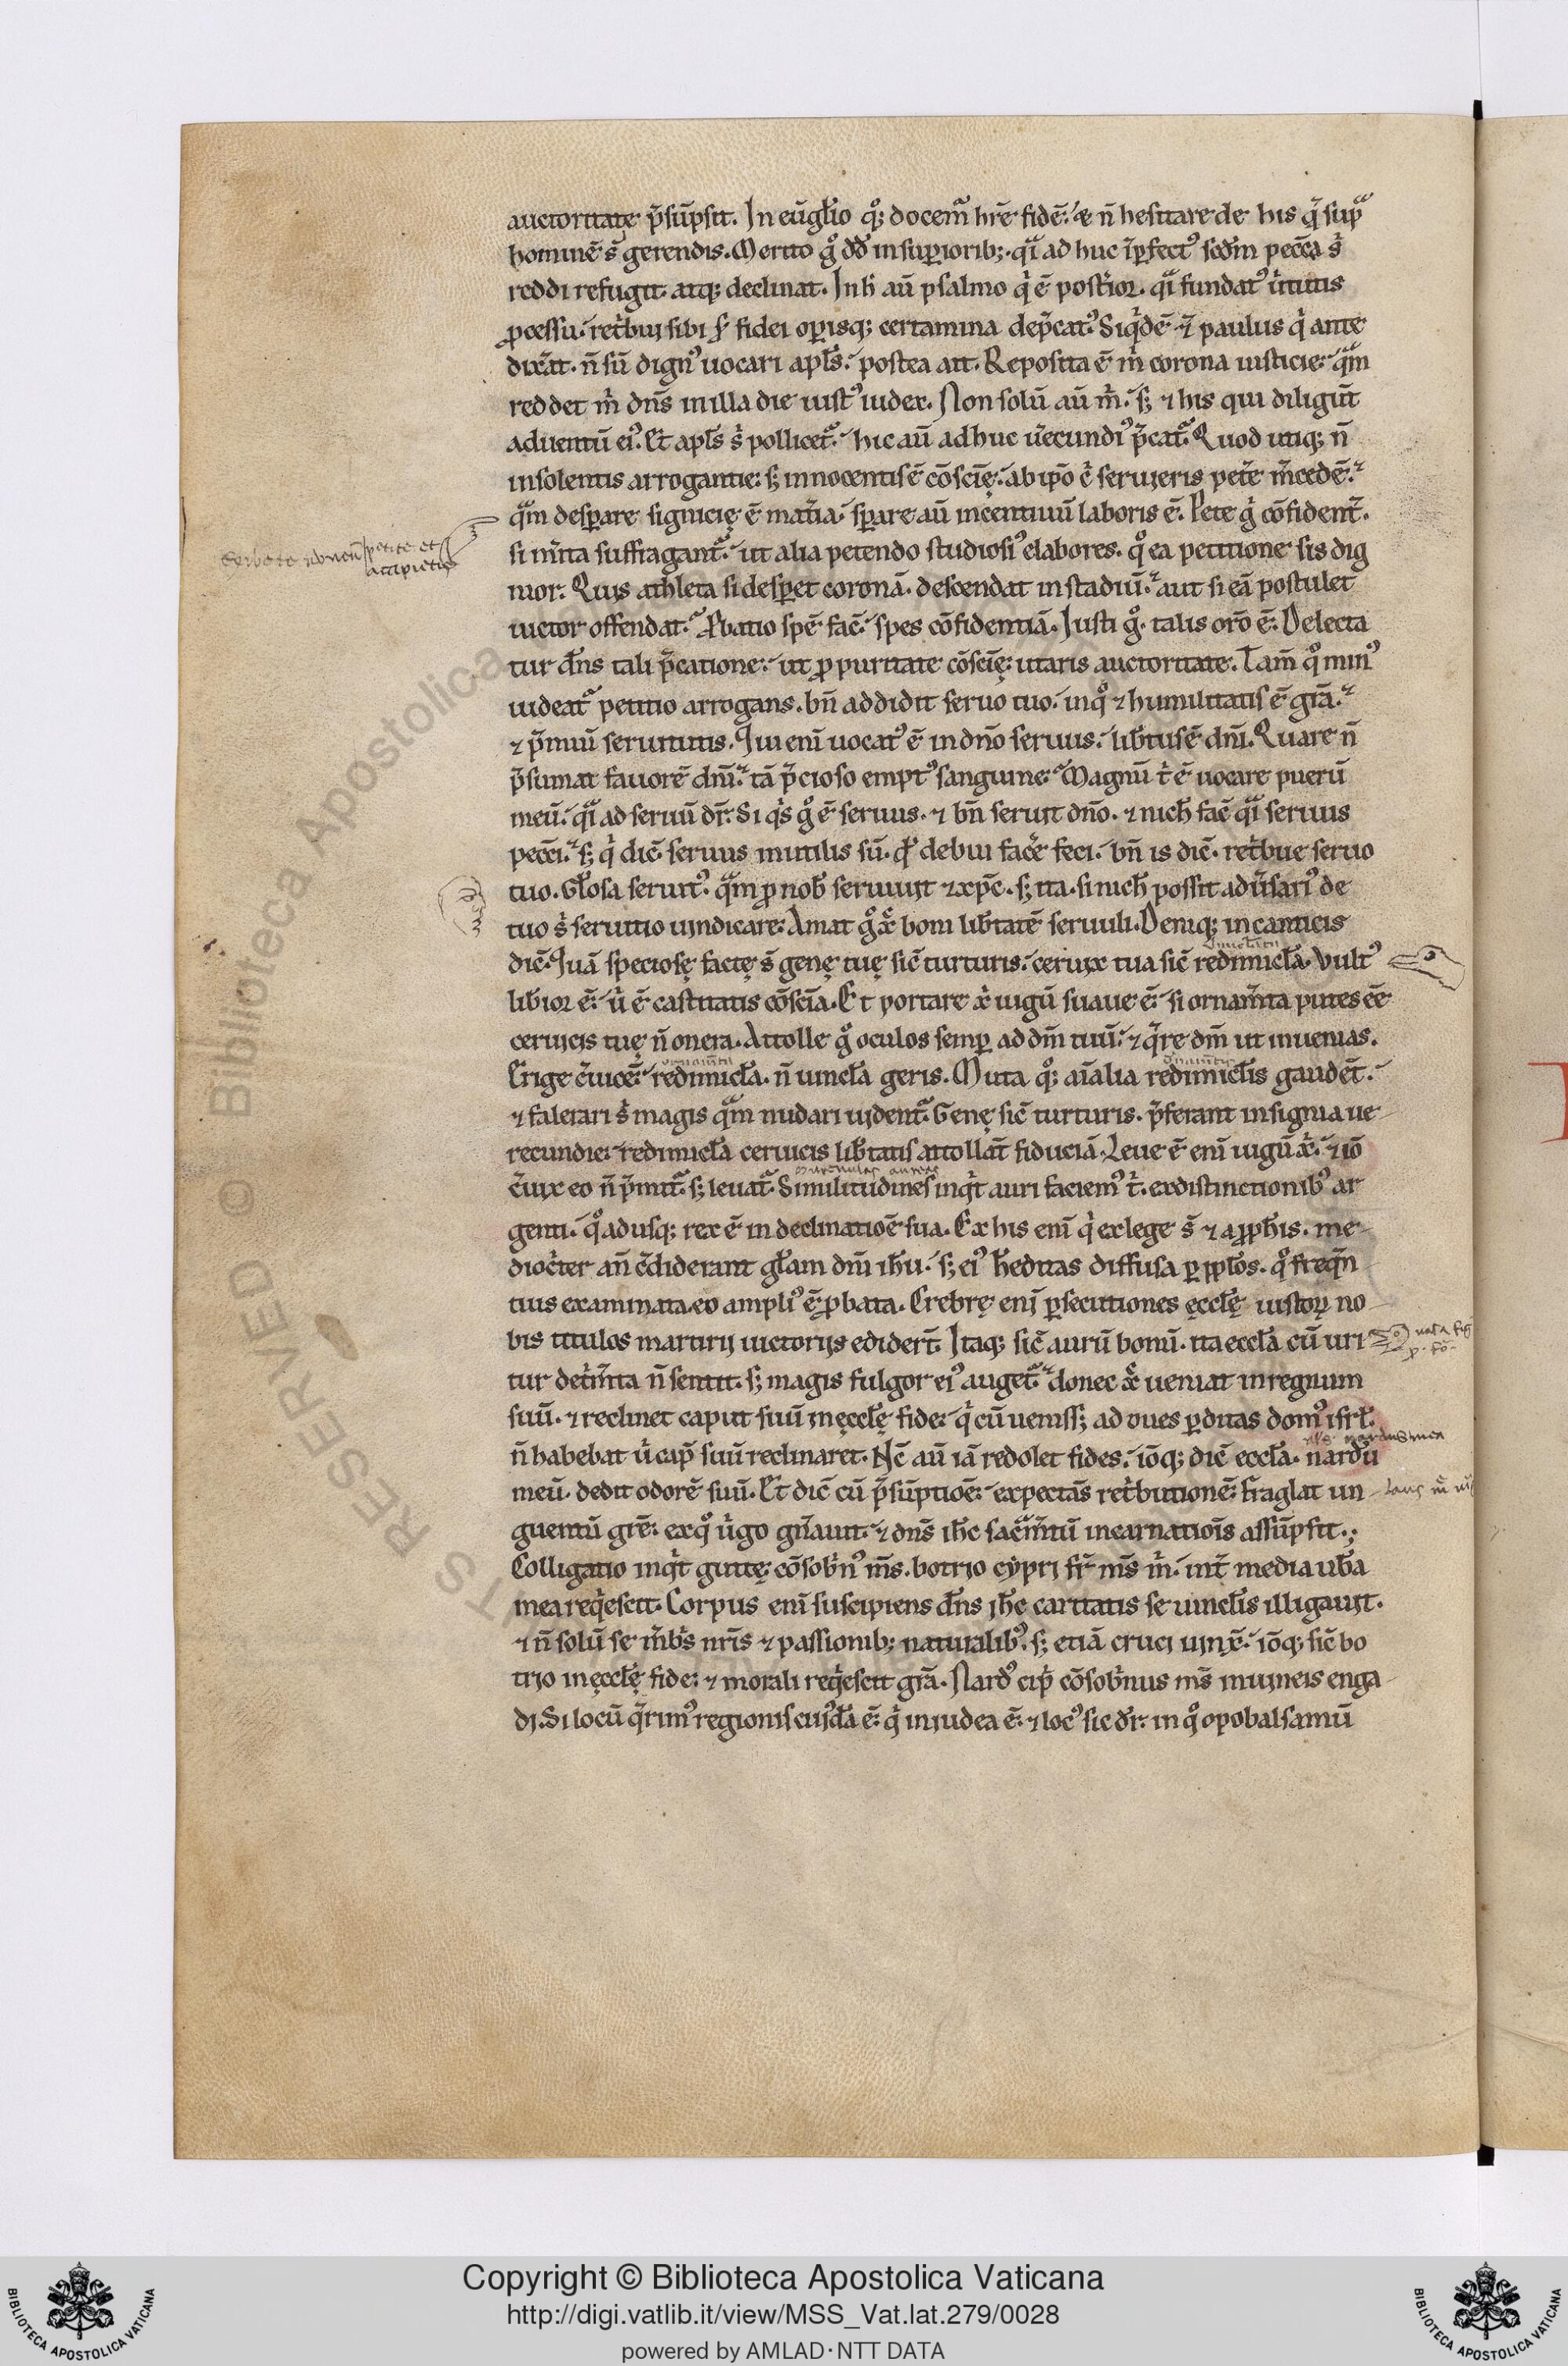 auctoritate p̄sūpsit. In eūgłio qͦ; docemᷓ hr̄e fidē. ⁊ n̄ hesitare de his q̄ supᷓ
hominē s̄ gerendis. Merito gͦ dd̄ in superiorib;. qᷓ ad huc īꝑfectꝰ scd̄m pecc̄a s̍
reddi refugit atq; declinat. In h̍ aū psalmo q̍ ē post̍ior. qᷓ fundatꝰ ūtutis
ꝓcessu. ret̍bui sibi ꝓ fidei oꝑisq; certamina dep̄catꝰ. Siq̍dē ⁊ paulus q̍ ante
dixāt. n̄ sū dignꝰ uocari apłs. postea ait. Reposita ē m̍ corona iusticie. qᷓm
reddet m̍ dn̄s in illa die iustꝰ iudex. Non solū aū m̍. s; ⁊ his qui diligūt
aduentū eiꝰ. Et apłs s̍ pollicetᷓ. hic aū adhuc uēcundiꝰ p̄catᷓ. Quod utiq; n̄
insolentis arrogantie. s; innocentis ē cōsciē̜. ab ip̄o c̍ serujeris petēe m̄cedē.
qᷓm desꝑare signicie̜ ē mat̄ia. sꝑare aū incentiuū laboris ē. Pete g̍ cōfident̄.
si m̄ita suffragantᷓ. ut alia petendo studiosiꝰ elabores. qͦ ea petitione sis dig
nior. Quis athleta si desꝑet coronā. descendat in stadiū. aut si eā postulet
uictor offendat. Ꝓbatio spē fac̄. spes cōfidentiā. Iusti gͦ. talis or̄o ē. Delecta
tur dn̄s tali p̄catione. ut ꝓ puritate cōsciē̜ utaris auctoritate. Tam̄ qͦ minꝰ
uideatᷓ petitio arrogans. bn̄ addidit seruo tuo. inqͦ ⁊ humilitatis ē grā.
⁊ p̄miū seruitutis. Qui enī uocatꝰ ē in dn̄o seruus. lib̄tus ē dn̄i. Quare n̄
p̄sumat fauorē dn̄i. tā p̄cioso emptꝰ sanguine. Magnū t̍ ē uocare puerū
meū. qᷓ ad seruū dr̄. Si q̍s gͦ ē seruus. ⁊ bn̄ seruit dn̄o. ⁊ nich̄ fac̄ qᷓ seruus
pecc̄i. s; q̍ dic̄. seruus inutilis sū. qd̄ debui fac̄e feci. bn̄ is dic̄. ret̍bue seruo
tuo. Głosa seruitꝰ. qᷓm ꝓ nob̄ seruiuit ⁊ xp̄c. s; ita. si nich̄ possit adūsariꝰ de
tuo s̍ seruitio uindicare. Amat gͦ x̄ boni lib̄tatē seruuli. Deniq; in canticis
dic̄. Quā speciose̜ facte̜ s̄ gene̜ tue̜ sic̄ turturis. ceruix tua sic̄ redimicła. Vultꝰ
lib̄ior ē. ū ē castitatis cōsciā. Et portare x̄ iugū suaue ē. si ornam̄ta putes ēē
ceruicis tue̜ n̄ onera. Attolle gͦ oculos semꝑ ad dm̄ tuū. ⁊ q̄re dm̄ ut inuenias.
Erige c̄uicē. redimicła. n̄ uincła geris. Muta qͦ; aīalia redimicłis gaudēt.
⁊ falerari s̍ magis qᷓm nudari uidentᷓ. Gene̜ sic̄ turturis. p̄ferant insignia ue
recundie. redimicła ceruicis lib̄tatis attollāt fiduciā. Leue ē enī iugū x̄. ⁊ iō
c̄uix eo n̄ p̄mitᷓ. s; leuatᷓ. Similitudines inq̍t auri faciemꝰ t̍. ex distinctionibꝰ ar
murenulas aureas
genti. qͦ adusq; rex ē in declinatiōe sua. Ex his enī q̍ ex lege s̄ ⁊ a ꝓph̄is. me
dioc̍ter an̄ c̄diderant głam dn̄i ih̄u. s; eiꝰ h̄editas diffusa ꝑ ppłos. qͦ freq̄n
tius examinata. eo ampliꝰ ē ꝓbata. Crebre̜ enī ꝑsecutiones e̜ccłe̜ iustoꝝ no
bis titulos martirij uictorijs edidert̄. Itaq; sic̄ aurū bonū. ita eccła cū uri
tur det̍m̄ta n̄ sentit. s; magis fulgor eiꝰ augetᷓ. donec x̄ ueniat in regnum
suū. ⁊ reclinet caput suū in e̜ccłe̜ fide. q̍ cū ueniss; ad oues ꝑditas domꝰ isrł.
n̄ habebat ū cap̄ suū reclinaret. Nc̄ aū iā redolet fides. iōq; dic̄ eccła. nardū
nardus mea
meū. dedit odorē suū. Et dic̄ cū p̄sūptiōe. expectās ret̍butionē. Fraglat un
guentū gr̄e. ex qͦ ūgo gn̄auit. ⁊ dn̄s ih̄c sac̄m̄tū incarnatiōis assūpsit.;
Colligatio inq̍t gutte̜. cōsob̍nꝰ m̄s. botrio cypri fr̄ m̄s m̍. int̄ media ub̄a
mea req̍escit. Corpus enī suscipiens dn̄s ih̄c caritatis se uincłis illigauit.
⁊ n̄ solū se m̄b̍s nr̄is ⁊ passionib; naturalibꝰ. s; etiā cruci uinx̄. iōq; sic̄ bo
trio in e̜ccłe̜ fide. ⁊ morali req̍escit grā. Nardꝰ cip̍ cōsob̍nus ms̄ in uineis enga
di. Si locū q̄rimꝰ regionis cuiꝰdā ē. q̍ in iudea ē. ⁊ locꝰ sic dr̄. in qͦ opobalsamū
petite et
accipietis
Copyright © Biblioteca Apostolica Vaticana
http://digi.vatlib.it/view/MSS_Vat.lat.279/0028
powered by AMLAD·NTT DATA
BIBLIOTECA APOSTOLICA VATICANA
BIBLIOTECA APOSTOLICA VATICANA